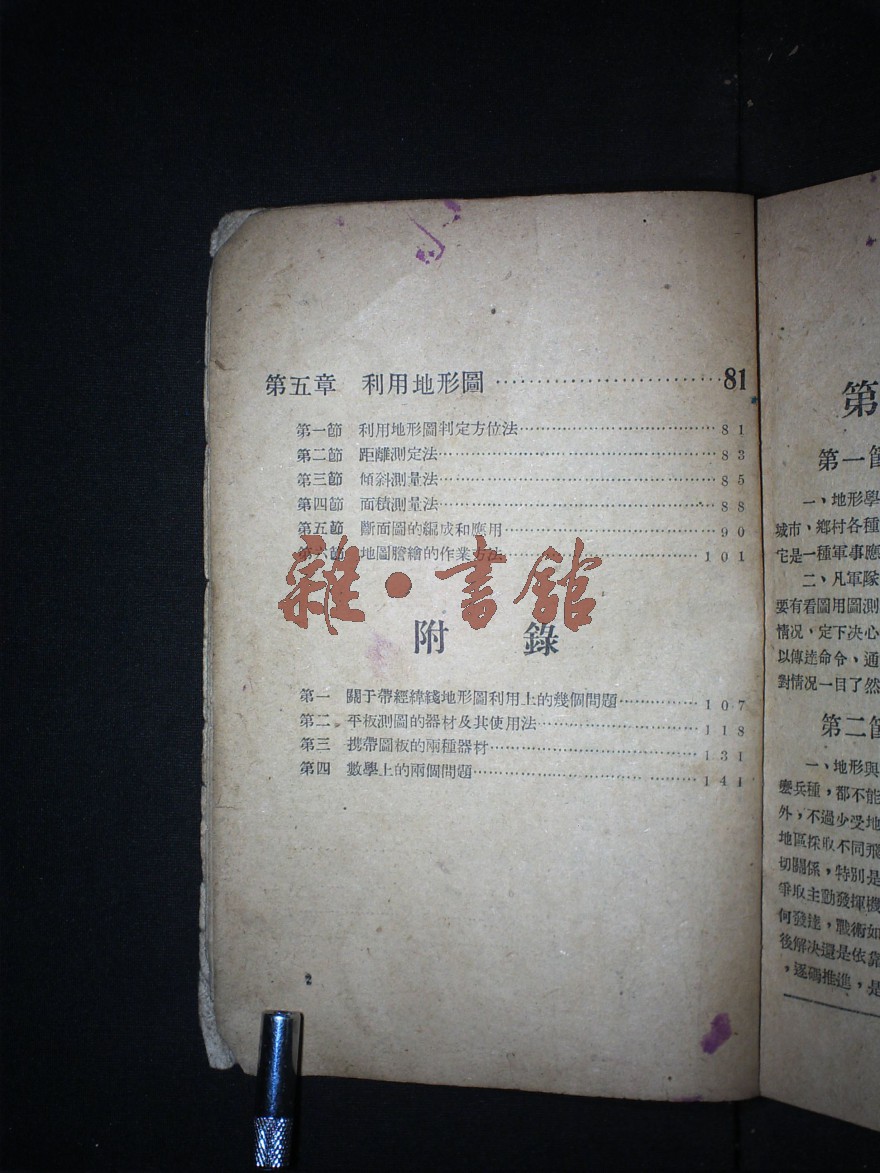 第五章 利用地形圖……………………81
第一節 利用地形圖判定方位法……………………81
第二節 距離測定法……………………83
第三節 傾斜測量法……………………85
第四節 面積測量法……………………88
第五節 斷面圖的編成和應用……………………90
第六節 地圖謄繪的作業方法……………………101
雜·書館
附 錄
第一 關于帶經緯綫地形圖利用上的幾個問題……………107
第二 平板測圖的器材及其使用法……………………118
第三 携帶圖板的兩種器材……………………131
第四 數學上的兩個問題……………………141
第
第一節
一、地形學
城市、鄉村各種
它是一種軍事應
二、凡軍隊
要有看圖用圖測
情况，定下决心
以傳達命令、通
對情况一目了然
第二節
一、地形與
麽兵種，都不能
外，不過少受地
地區採取不同飛
切關係，特別是
爭取主動發揮機
何發達，戰術如
後解决還是依靠
，逐碼推進，是